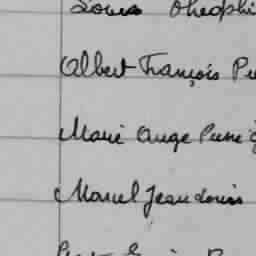 Louis Théophi
Albert François Pi
Marie Ange Pierre
Marcel Jean Louis